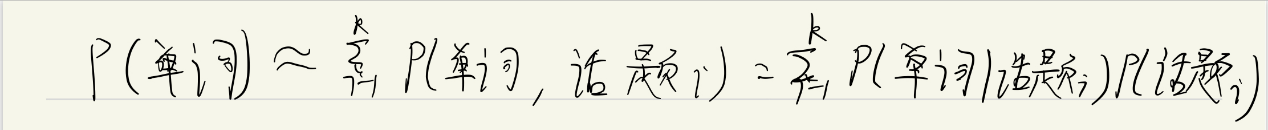 P(单词) ≈ ∑_{i=1}^{k} P(单词, 话题_i) = ∑_{i=1}^{k} P(单词|话题_i)P(话题_i)